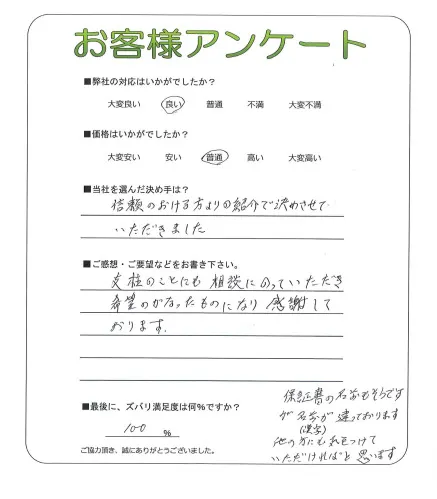 お客様アンケート
■弊社の対応はいかがでしたか？
大変良い 良い 普通 不満 大変不満
■価格はいかがでしたか？
大変安い 安い 普通 高い 大変高い
■当社を選んだ決め手は？
信頼のおける方よりの紹介で決めさせて
いただきました
■ご感想・ご要望などをお書き下さい。
支柱のことにも相談にのっていただき
希望のかなったものになり感謝して
おります.
■最後に、ズバリ満足度は何%ですか？
100 %
ご協力頂き、誠にありがとうございました。
保証書の名前もそうです
が名前が違っております
(漢字)
他の方にも気をつけて
いただければと思います